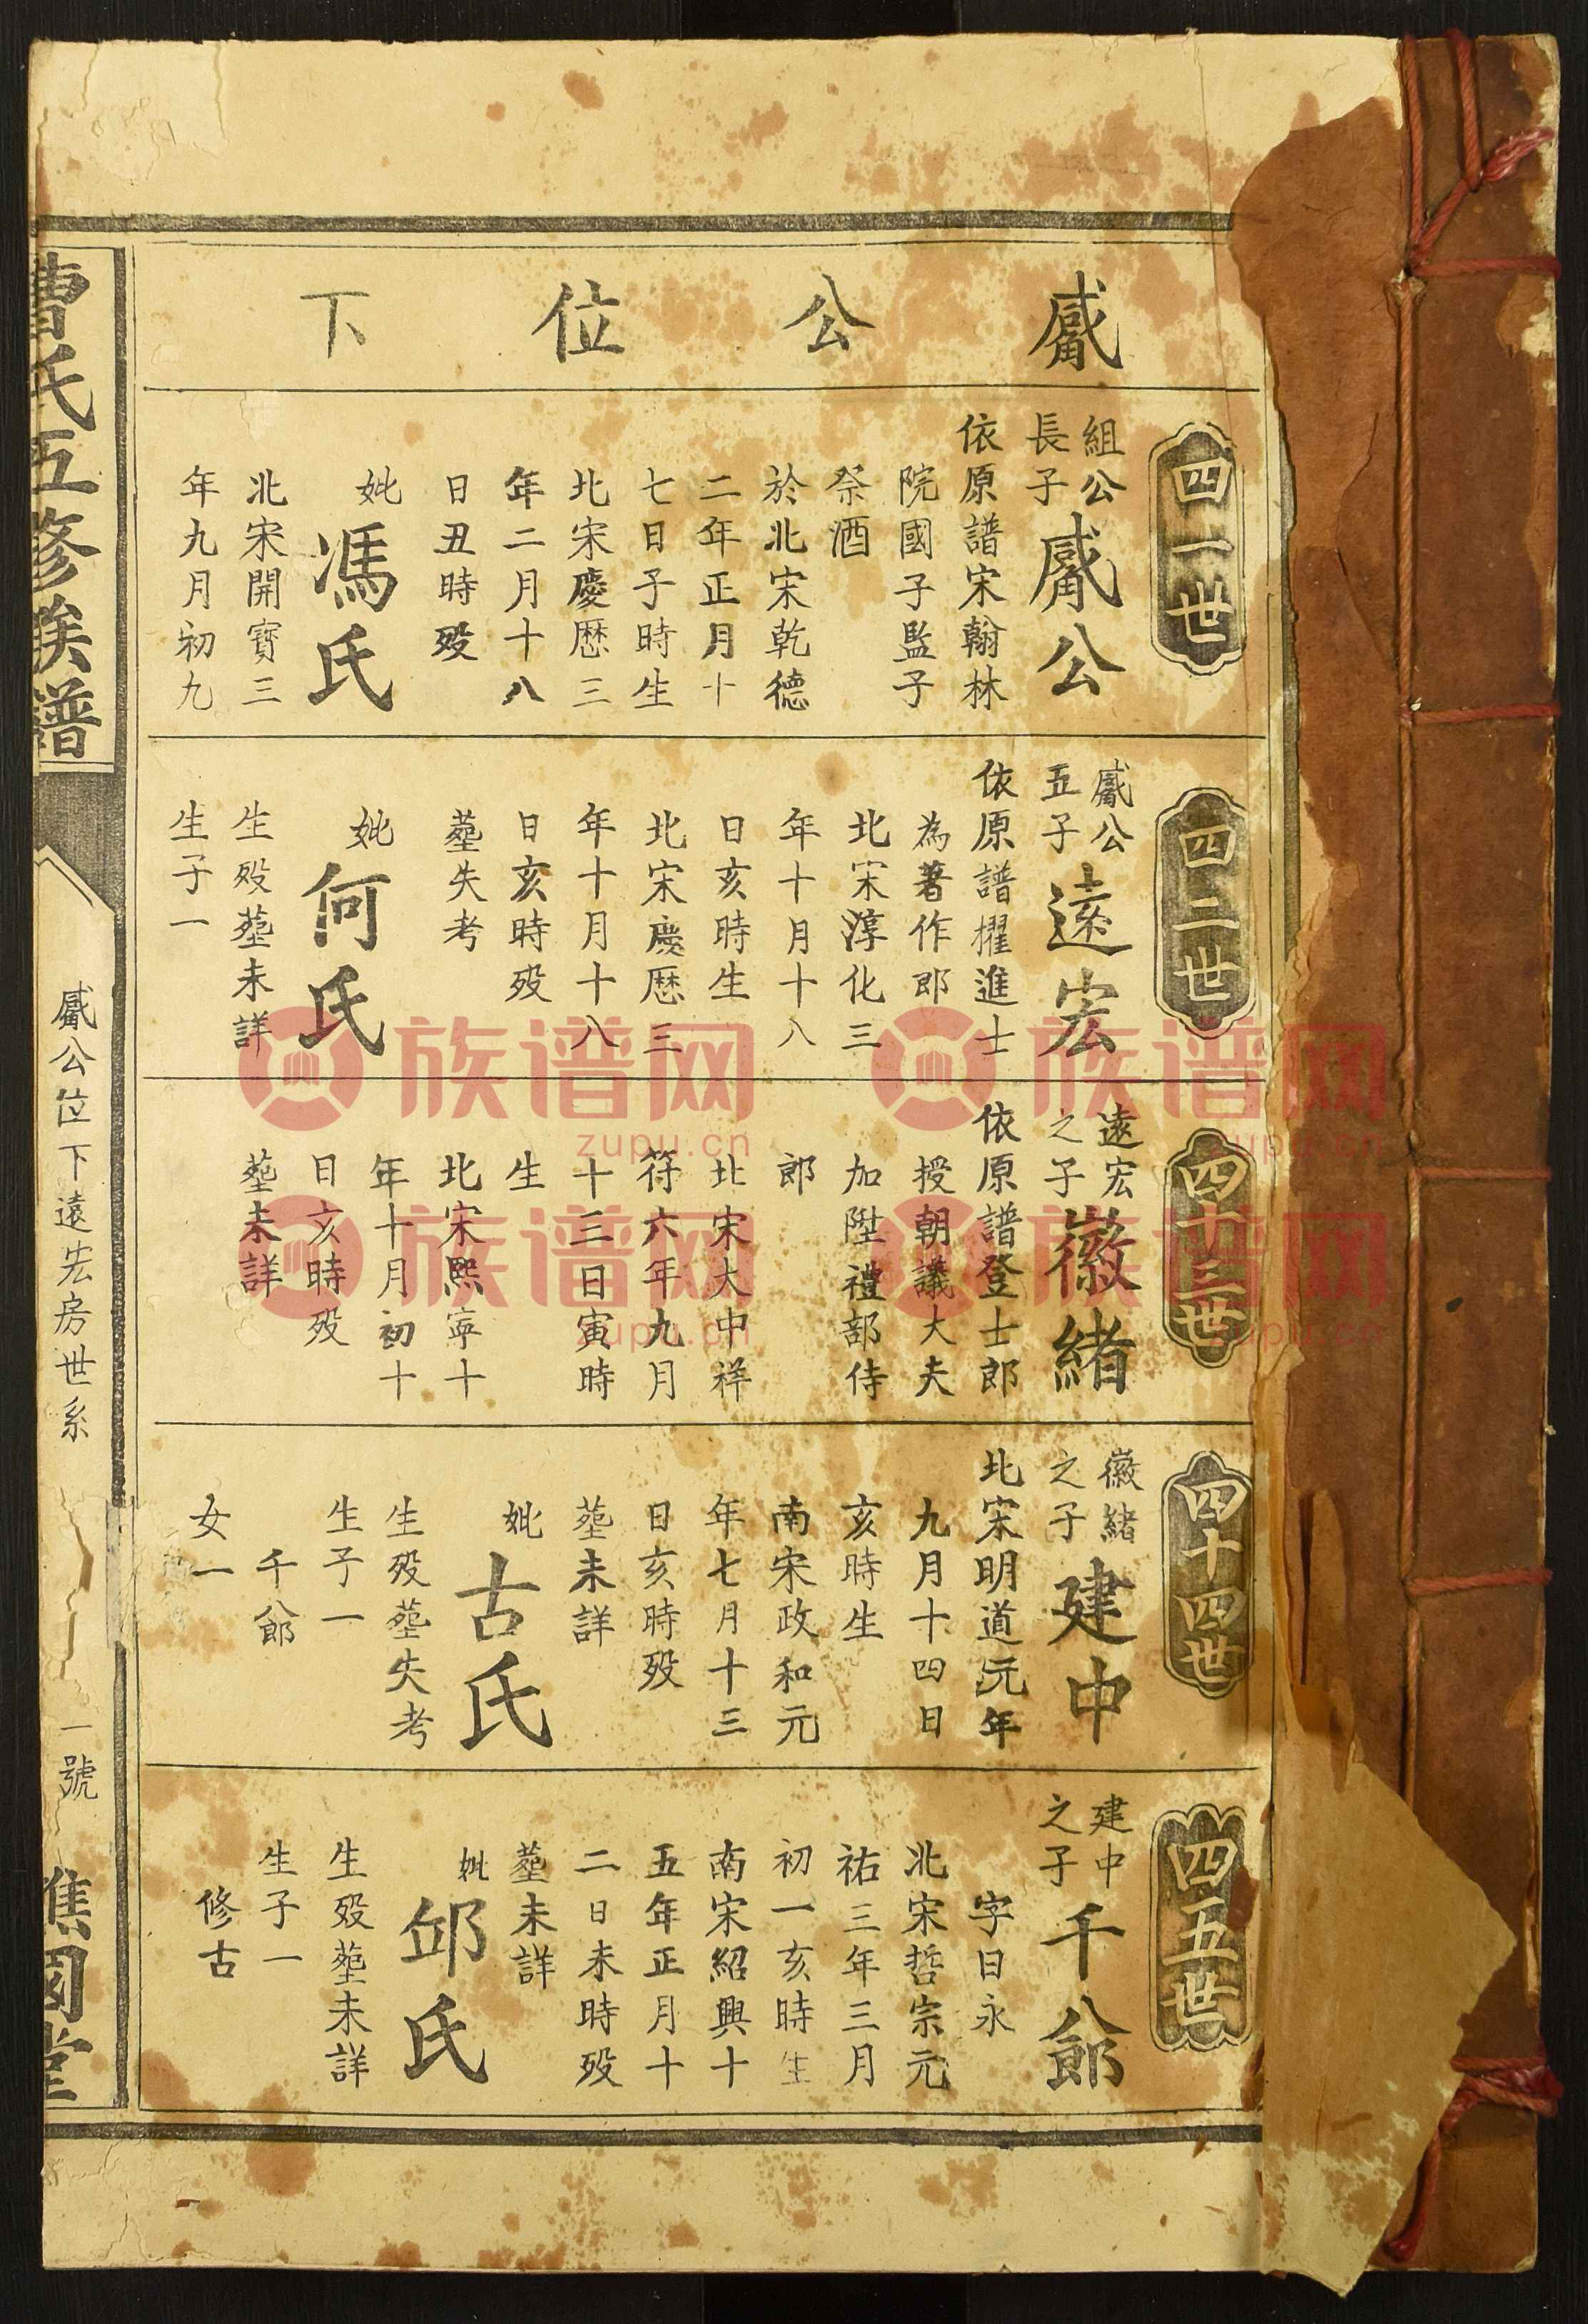 公位下
四一世
組公
長子
公
依原譜宋翰林
院國子監子
祭酒
於北宋乾德
二年正月十
七日子時生
北宋慶歷三
年二月十八
日丑時歿
妣
馮氏
北宋開寶三
年九月初九
四二世
公
五子
遠宏
依原譜擢進士
為著作郎
北宋淳化三
年十月十八
日亥時生
北宋慶歷三
年十月十八
日亥時歿
塟失考
妣
何氏
生歿塟未詳
生子一
四十三世
遠宏
之子
徽緒
依原譜登士郎
授朝議大夫
加陞禮部侍
郎
北宋大中祥
符六年九月
十三日寅時
生
北宋熙寧十
年十月初十
日亥時歿
塟未詳
四十四世
徽緒
之子
建中
北宋明道元年
九月十四日
亥時生
南宋政和元
年七月十三
日亥時歿
塟未詳
妣
古氏
生歿塟失考
生子一
千八郎
女一
四五世
建中
之子
千八郎
字日永
北宋哲宗元
祐三年三月
初一亥時生
南宋紹興十
五年正月十
二日未時歿
塟未詳
妣
邱氏
生歿塟未詳
生子一
修古
曹氏五修族譜
公位下遠宏房世系
一號
譙國堂
族谱网
zupu.cn
族谱网
zupu.cn
族谱网
zupu.cn
族谱网
zupu.cn